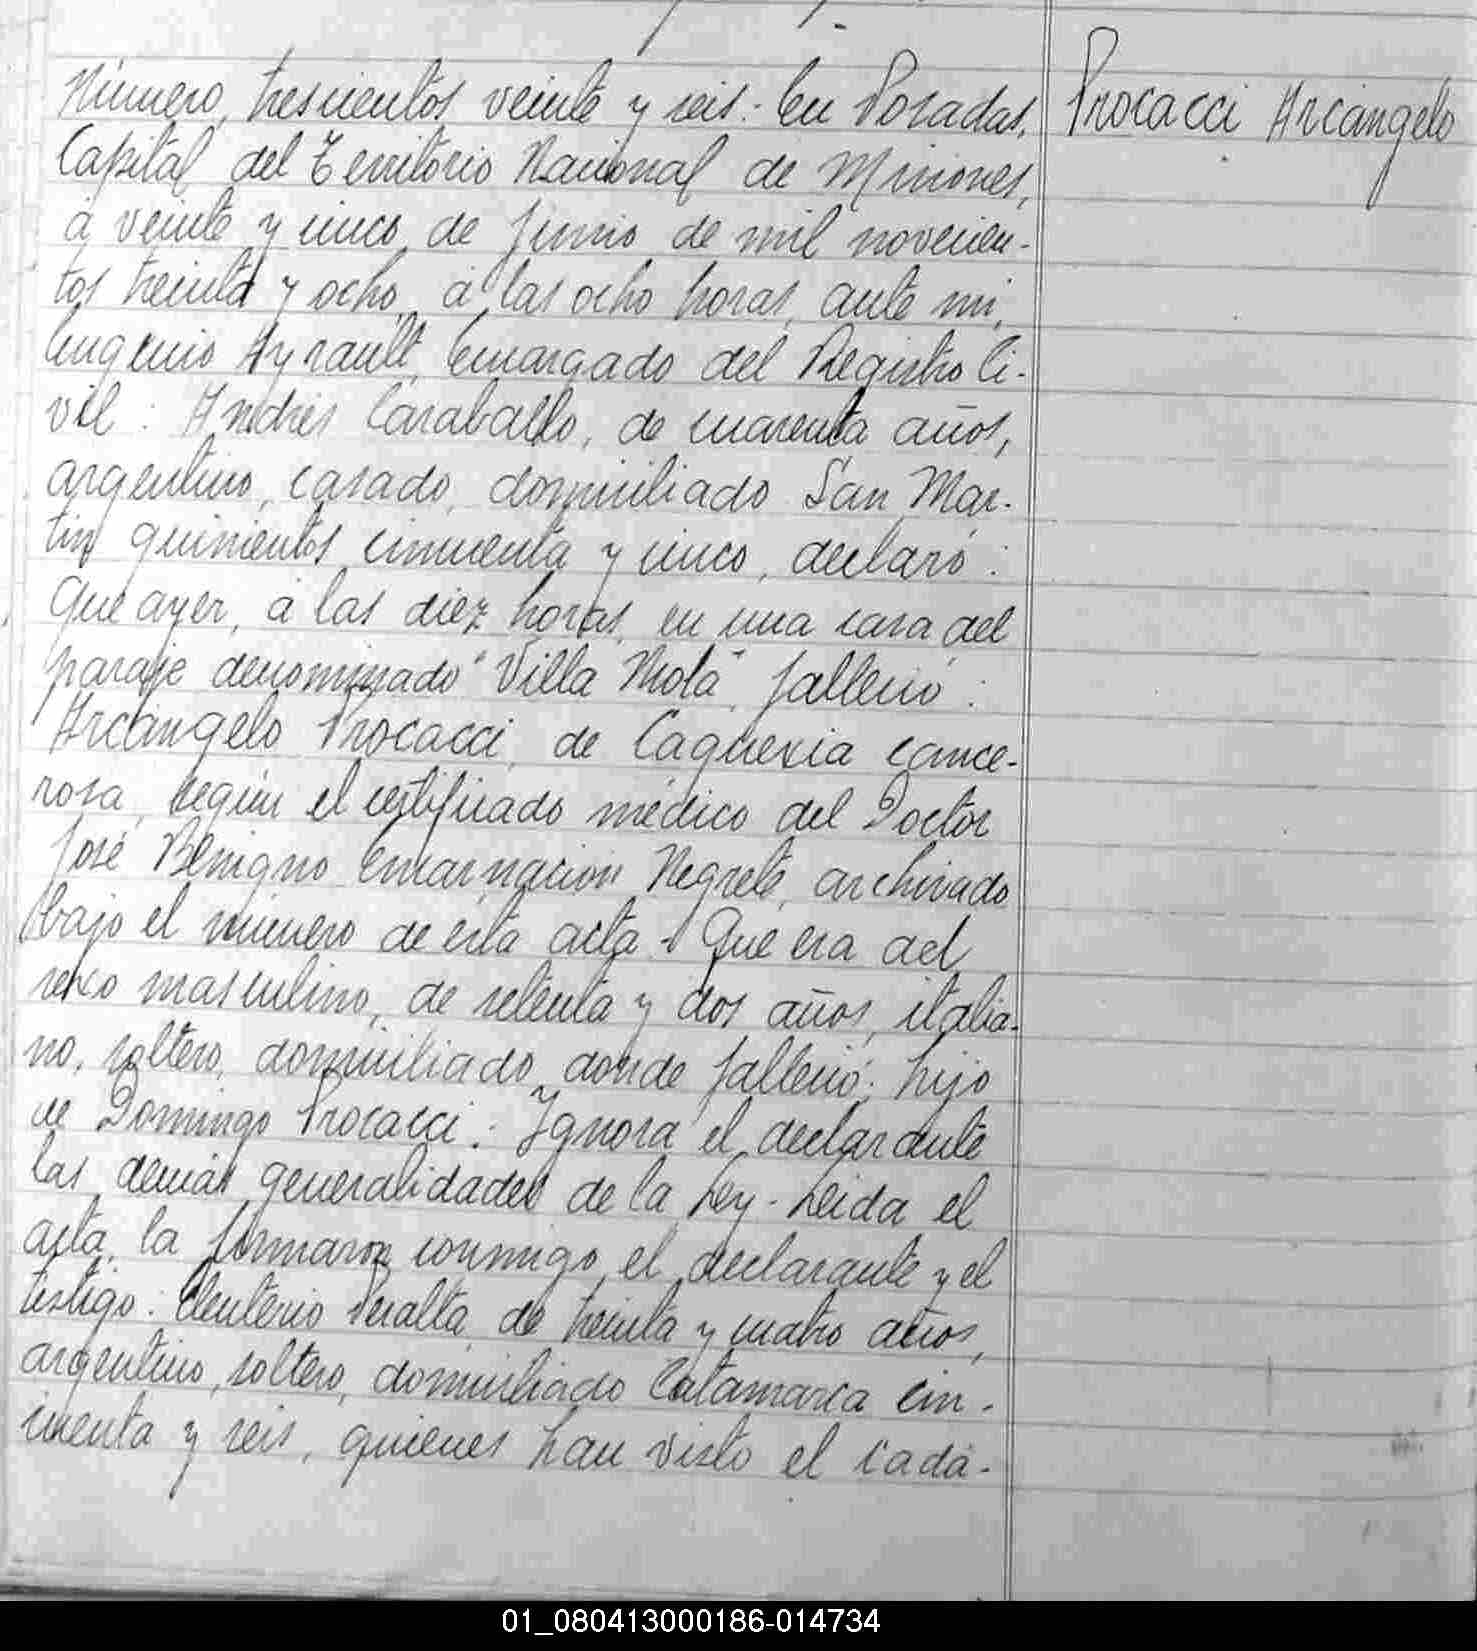 Número, trescientos veinte y seis. En Posadas,
Procacci Arcángelo
Capital del Territorio Nacional de Misiones,
á veinte y cinco de Junio de mil novecien-
tos treinta y ocho, á las ocho horas, ante mi,
Eugenio Ayrault, Encargado del Registro Ci-
vil: Andrés Caraballo, de cuarenta años,
argentino, casado, domiciliado San Mar-
tin quinientos cincuenta y cinco, declaró:
Que ayer, á las diez horas, en una casa del
paraje denominado "Villa Mota", falleció:
Arcángelo Procacci, de Caquexia cance-
rosa, según el certificado médico del Doctor
José Benigno Encarnación Negrete, archivado
bajo el número de esta acta. Que era del
sexo masculino, de setenta y dos años, italia-
no, soltero, domiciliado donde falleció; hijo
de Domingo Procacci. Ignora el declarante
las demás generalidades de la Ley. Leida el
acta, la firmaron conmigo, el declarante y el
testigo: Eleuterio Peralta, de treinta y cuatro años,
argentino, soltero, domiciliado Catamarca cin-
cuenta y seis, quienes han visto el cadá-
01_080413000186-014734